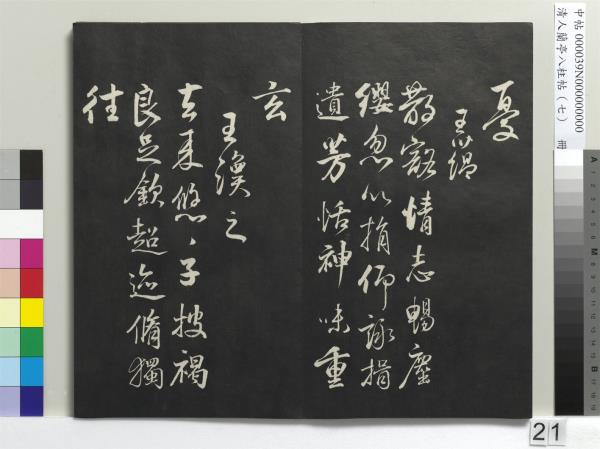 憂
王蘊
散豁情志暢塵
纓忽以捐仰詠揖
遺芳恬神味重
玄
王渙之
去來悠々子披褐
良足欽超迹脩獨
往
中帖 000039N000000000
清人蘭亭八柱帖（七） 冊
21